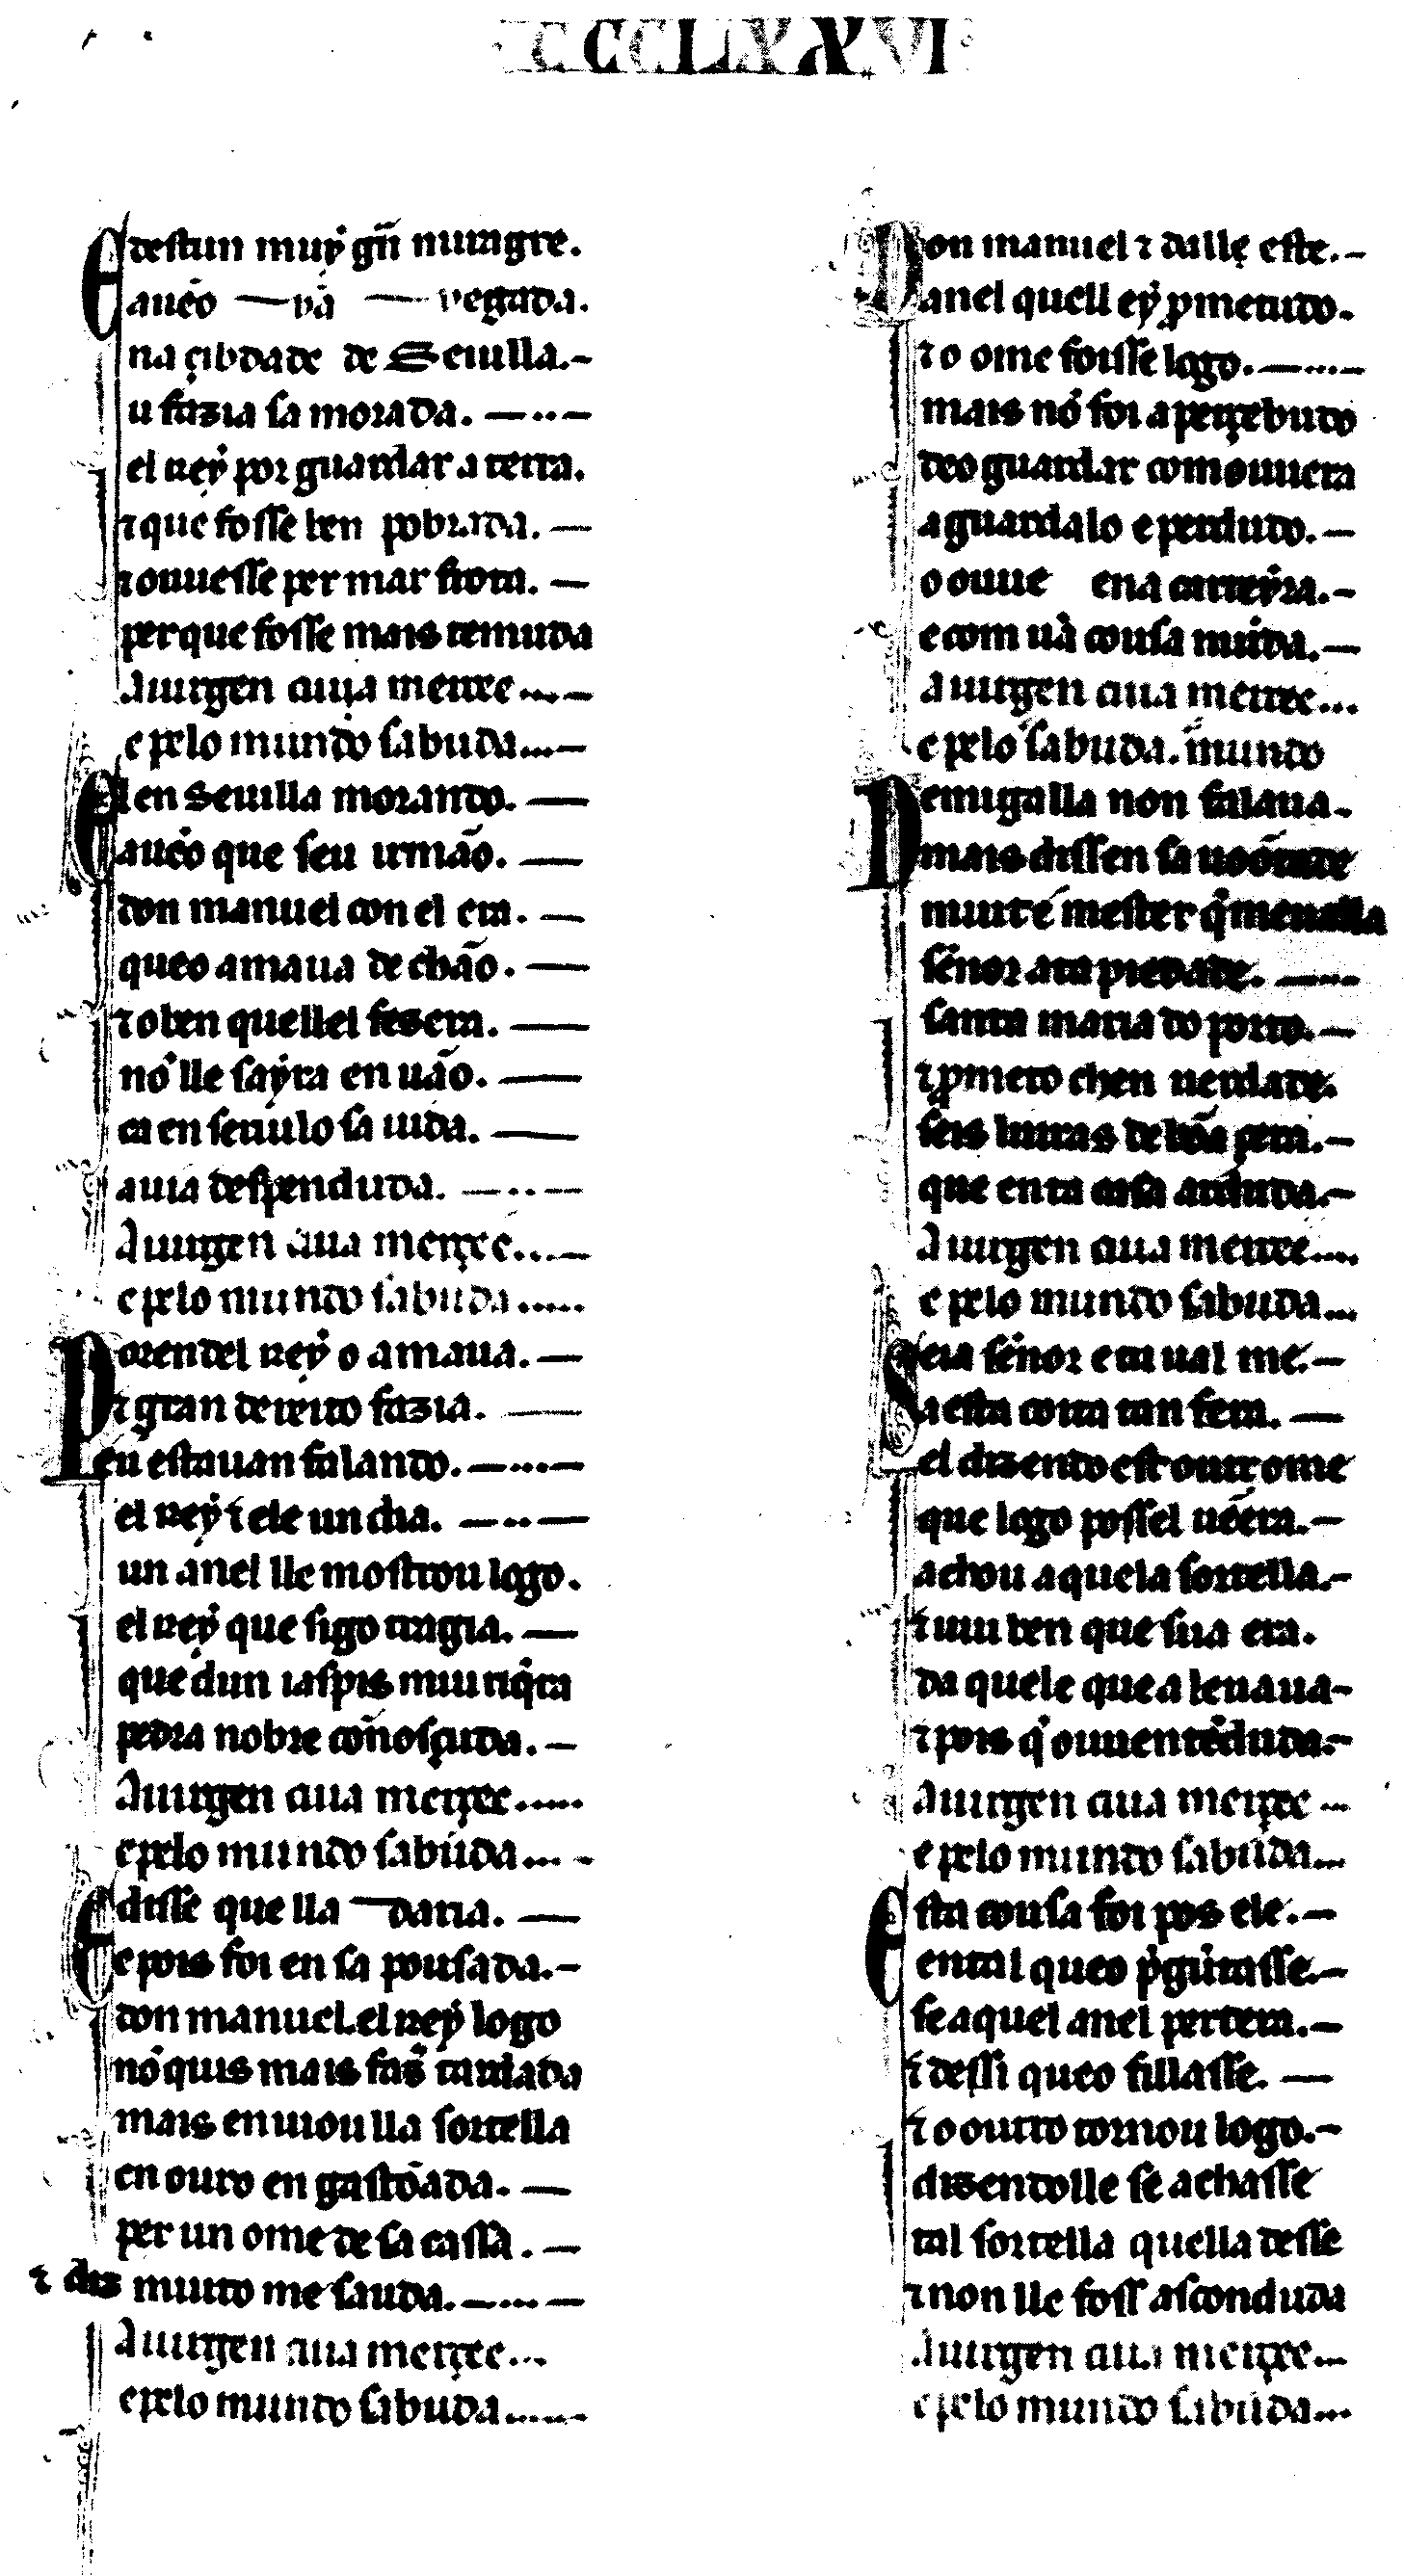 CCCLXXVI
E destun muy gñ miragre.
aueo — vã — vegada.
na çibdade de Seuilla.-
u fazia sa morada. —..—
el rey por guardar a terra.
⁊ que fosse ben pobrada. —
⁊ ouuesse per mar frota. —
per que fosse mais temuda
A uirgen cuia merçee...—
e pelo mundo sabuda...—
El en Seuilla morando. —
aueo que seu irmão. —
don manuel con el era. —
queo amaua de chão. —
⁊ o ben quellel fezera. —
nõ lle sayra en uão. —
ca en seruilo sa uida. —
auia despenduda. —..—
A uirgen cuia merçee...—
e pelo mundo sabuda.....
Porendel rey o amaua. —
⁊ gran dereito fazia. —
eu estauan falando. —...—
el rey ⁊ ele un dia. —..—
un anel lle mostrou logo.
el rey que sigo tragia. —
que dun iaspis mui riq̃ta
pedra nobre coñosçuda. —
A uirgen cuia merçee.....
e pelo mundo sabuda... -
E disse que lla — daria. —
e pois foi en sa pousada.-
don manuel. el rey logo
nõ quis mais faz̃ tardada
mais enuiou lla sortella
en ouro engastõada. —
per un ome de sa cassa. —
⁊ diz muito me sauda.—...—
A uirgen cuia merçee...
e pelo mundo sabuda.....
Don manuel ⁊ dalle este.-
anel quell ey p̃metudo.
⁊ o ome foisse logo.—...—
mais nõ foi aperçebudo
deo guardar como ouuera
a guardalo e perdudo.—
o ouue ena carreyra.-
e com uã cousa mũda.—
A uirgen cuia merçee...
e pelo sabuda. mundo
Demigalla non falaua.-
mais diss en sa uoõtade
muit é mester q̃ me ualla
sẽnor ata piedade. —...—
santa maria do porto.—
⁊ p̃meto ch en uerdade.
seis liuras de bõa çera.—
que en ta casa arduda.—
A uirgen cuia merçee....
e pelo mundo sabuda...
Seia sẽnor e tu ual me.—
a esta coita tan fera. —
el dizendo est outr ome
que logo poss el uẽera.—
achou aquela sortella.-
⁊ uiu ben que sua era.
da quele que a leuaua-
⁊ pois q̃ ouu entẽduda.-
A uirgen cuia merçee ...
e pelo mundo sabuda...
Esta cousa foi pos ele.—
ental queo p̃gũtasse.—
se aquel anel perdera.—
⁊ dessi queo fillasse. —
⁊ o outro tornou logo.—
dizendolle se achasse
tal sortella quella desse
⁊ non lle foss asconduda
A uirgen cuia merçee...
e pelo mundo sabuda...